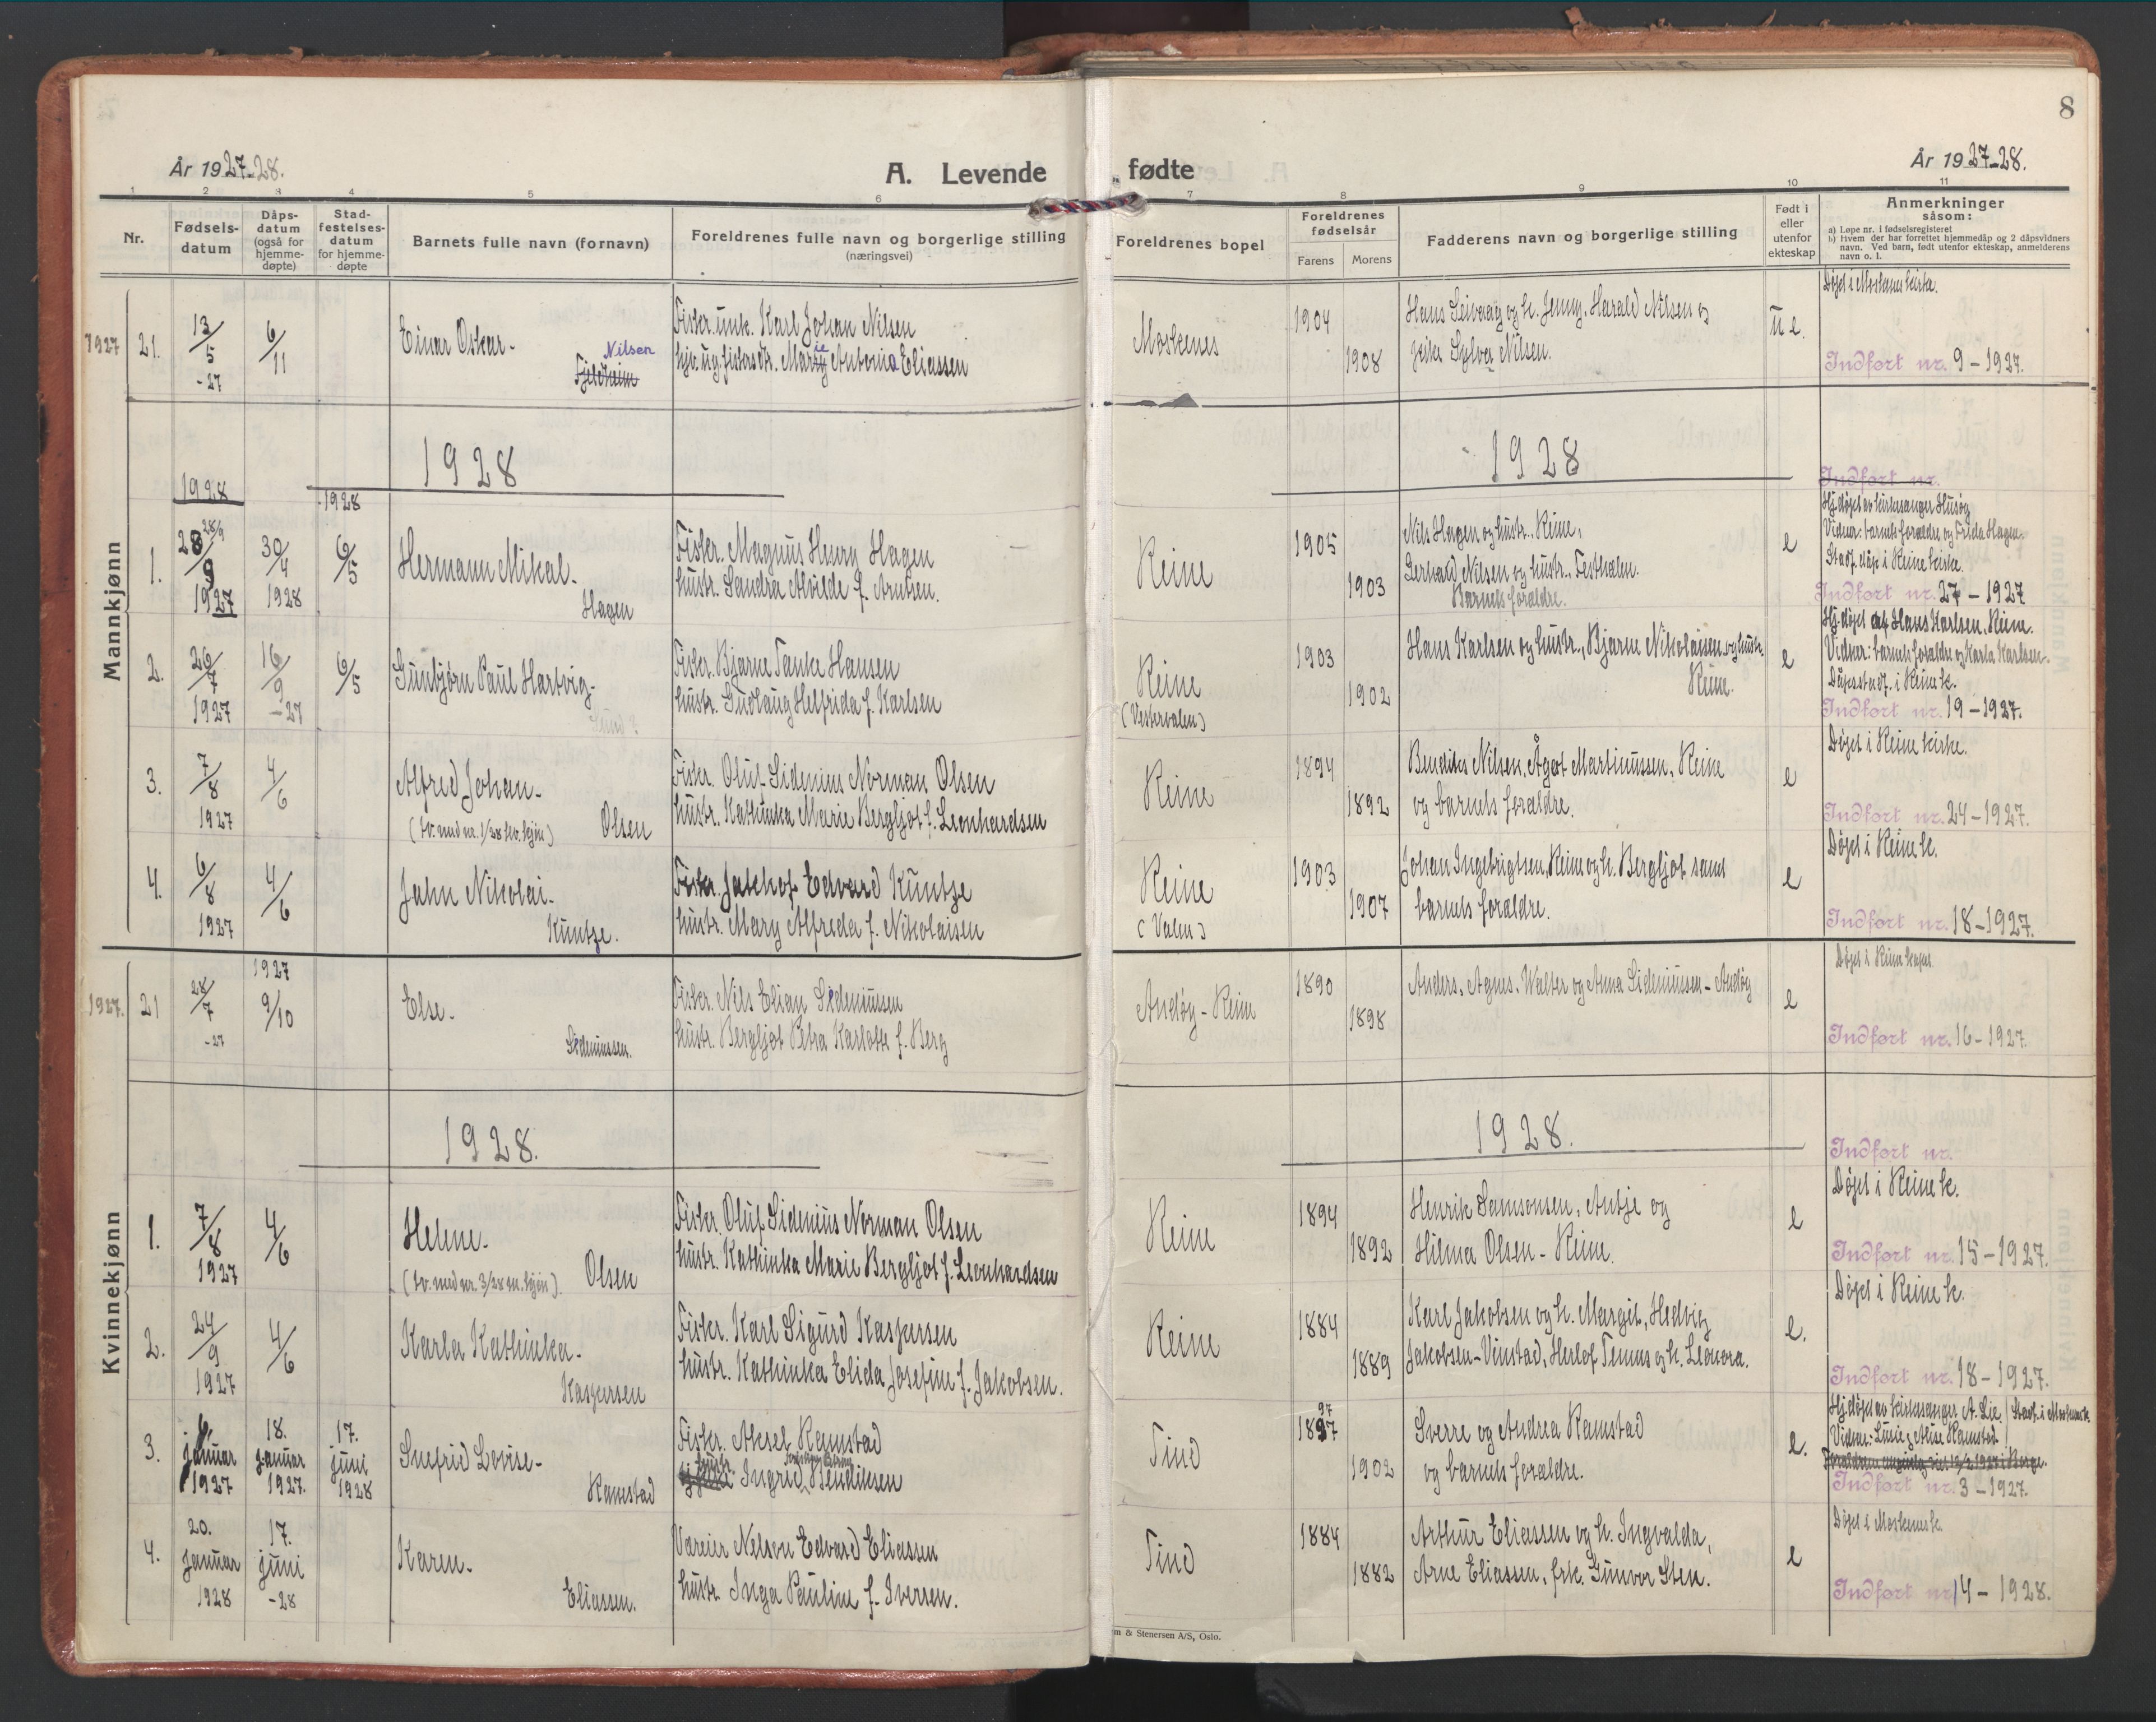 8
År 1927-28.
A. Levende fødte
År 1927-28.
1 2 3 4 5 6 7 8 9 10 11
Nr.
Fødsels-
datum
Dåps-
datum
(også for
hjemme-
døpte)
Stad-
festelses-
datum
for hjemme-
døpte
Barnets fulle navn (fornavn)
Foreldrenes fulle navn og borgerlige stilling
(næringsvei)
Foreldrenes bopel
Foreldrenes
fødselsår
Farens Morens
Fadderens navn og borgerlige stilling
Født i
eller
utenfor
ekteskap
Anmerkninger
såsom:
a) Løpe nr. i fødselsregisteret
b) Hvem der har forrettet hjemmedåp og 2 dåpsvidners
navn. Ved barn, født utenfor ekteskap, anmelderens
navn o. l.
Mannkjønn
1927 21. 13/5 -27 6/11
Einar Oskar-
Nilsen
Fjeldheim
Fisker. unk. Karl Johan Nilsen
Antonia Eliassen
Moskenes
1904
1908
Hans Leivaag og h. Jenny, Harald Nilsen og
Sylvei Nilsen.
u e.
Døpt i Moskenes kirke.
Indført nr. 9-1927.
1928
1928
1928
1928
Indført nr.
1. 28/9 1927 30/4 1928 6/5
28/9
Hermann Mikal-
Hagen
Fisker. Magnus Henry Hagen
hustr. Sandra Alvilde f. Arntsen.
Reine
1905
1903
Nils Hagen og hustr., Reine,
Gerhard Nilsen og hustr., Festhælen.
Barnets forældre.
e
Hj.døpt av kirkesanger Husøy
Vidner: barnets forældre og Frida Hagen.
Stadf. dåp i Reine kirke.
Indført nr. 27-1927
2. 26/7 1927 16/9 -27 6/5
Gunbjørn Paul Hartvig-
Fisker. Bjarne Tanke Hansen
hustr. Gudlaug Helfrida f. Karlsen
Reine
(Vestervalen)
1903
1902
Hans Karlsen og hustr., Bjarne Nikolaisen og hustr.
Reine.
e
Hj.døpt af Hans Karlsen, Reine.
Vidner: barnets forældre og Karla Karlsen.
Dåpsstadf. i Reine k.
Indført nr. 19-1927.
3. 7/8 1927 4/6
Alfred Johan-
(tv. med nr. 1/28 kv. kjøn)
Olsen
Fisker. Oluf Sidenius Norman Olsen
hustr. Kathinka Marie Bergljot f. Leonhardsen
Reine
1894
1892
Bendiks Nilsen, Ågot Martinussen, Reine
og barnets forældre.
e
Døpt i Reine kirke.
Indført nr. 24-1927.
4. 6/8 1927 4/6
Jahn Nikolai-
Kuntze.
Fisker. Jakhof Edvard Kuntze
hustr. Mary Alfreda f. Nikolaisen
Reine
(Valen)
1903
1907
Johan Ingebrigtsen, Reine og h. Bergljot samt
barnets forældre.
e
Døpt i Reine k.
Indført nr. 18-1927.
Kvinnekjønn
1927. 21 28/7 -27 1927 9/10
Else-
Sideniussen.
Fisker. Nils Elian Sideniussen
hustr. Bergljot Petra Karlotte f. Berg
Andøy - Reine
1890
1898
Anders, Agnes, Walter og Anna Sideniussen - Andøy
e
Døpt i Reine kapel
Indført nr. 16-1927.
1928.
1928.
Indført nr.
1. 7/8 1927 4/6
Helene-
(tv. med nr. 3/28 m. kjøn).
Olsen
Fisker. Oluf Sidenius Norman Olsen
hustr. Kathinka Marie Bergljot f. Leonhardsen
Reine
1894
1892
Henrik Samsonsen, Antje og
Hilma Olsen - Reine.
e
Døpt i Reine k.
Indført nr. 15-1927.
2. 24/9 1927 4/6
Karla Kathinka-
Kaspersen
Fisker. Karl Sigurd Kaspersen
hustr. Kathinka Elida Josefine f. Jakobsen.
Reine
1884
1889
Karl Jakobsen og h. Margit, Hedvig
Jakobsen - Vinstad, Herlof Tennes og h. Leonora.
e.
Døpt i Reine k.
Indført nr. 18-1927.
3. 6. januar 1927 18. januar 1927. 17. juni 1928
Snefrid Lovise-
Ramstad
Fisker. Aksel Ramstad
hustr. Ingrid Bendiksen
Tind
1897
1902
Sverre og Andrea Ramstad
og barnets forældre.
e.
Hj.døpt av kirkesanger A. Lie / Stadf. i Moskenes k.
Vidner: Lucie og Alise Ramstad.
Indført nr. 3-1927.
4. 20. januar 1928 17. juni -28
Karen-
Eliassen.
Væreier Nelson Edvard Eliassen
hustr. Inga Pauline f. Iversen.
Tind
1884
1882
Arthur Eliassen og h. Ingvalda,
Arne Eliassen, frk. Gunvor Sten.
e
Døpt i Moskenes k.
Indført nr. 14-1928.
m & Stenersen A/S, Oslo.